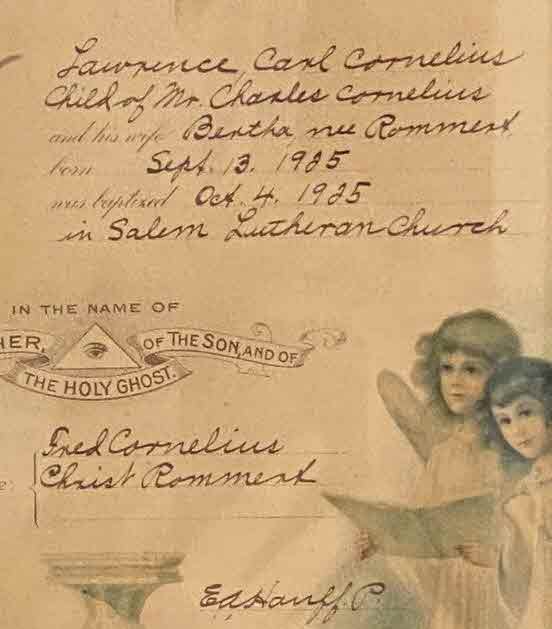 Lawrence Carl Cornelius
Child of Mr. Charles Cornelius
and his wife Bertha, nee Rommert
born Sept. 13. 1925
was baptized Oct. 4. 1925
in Salem Lutheran Church
IN THE NAME OF
HER, OF THE SON, AND OF
THE HOLY GHOST.
Fred Cornelius
Christ Rommert